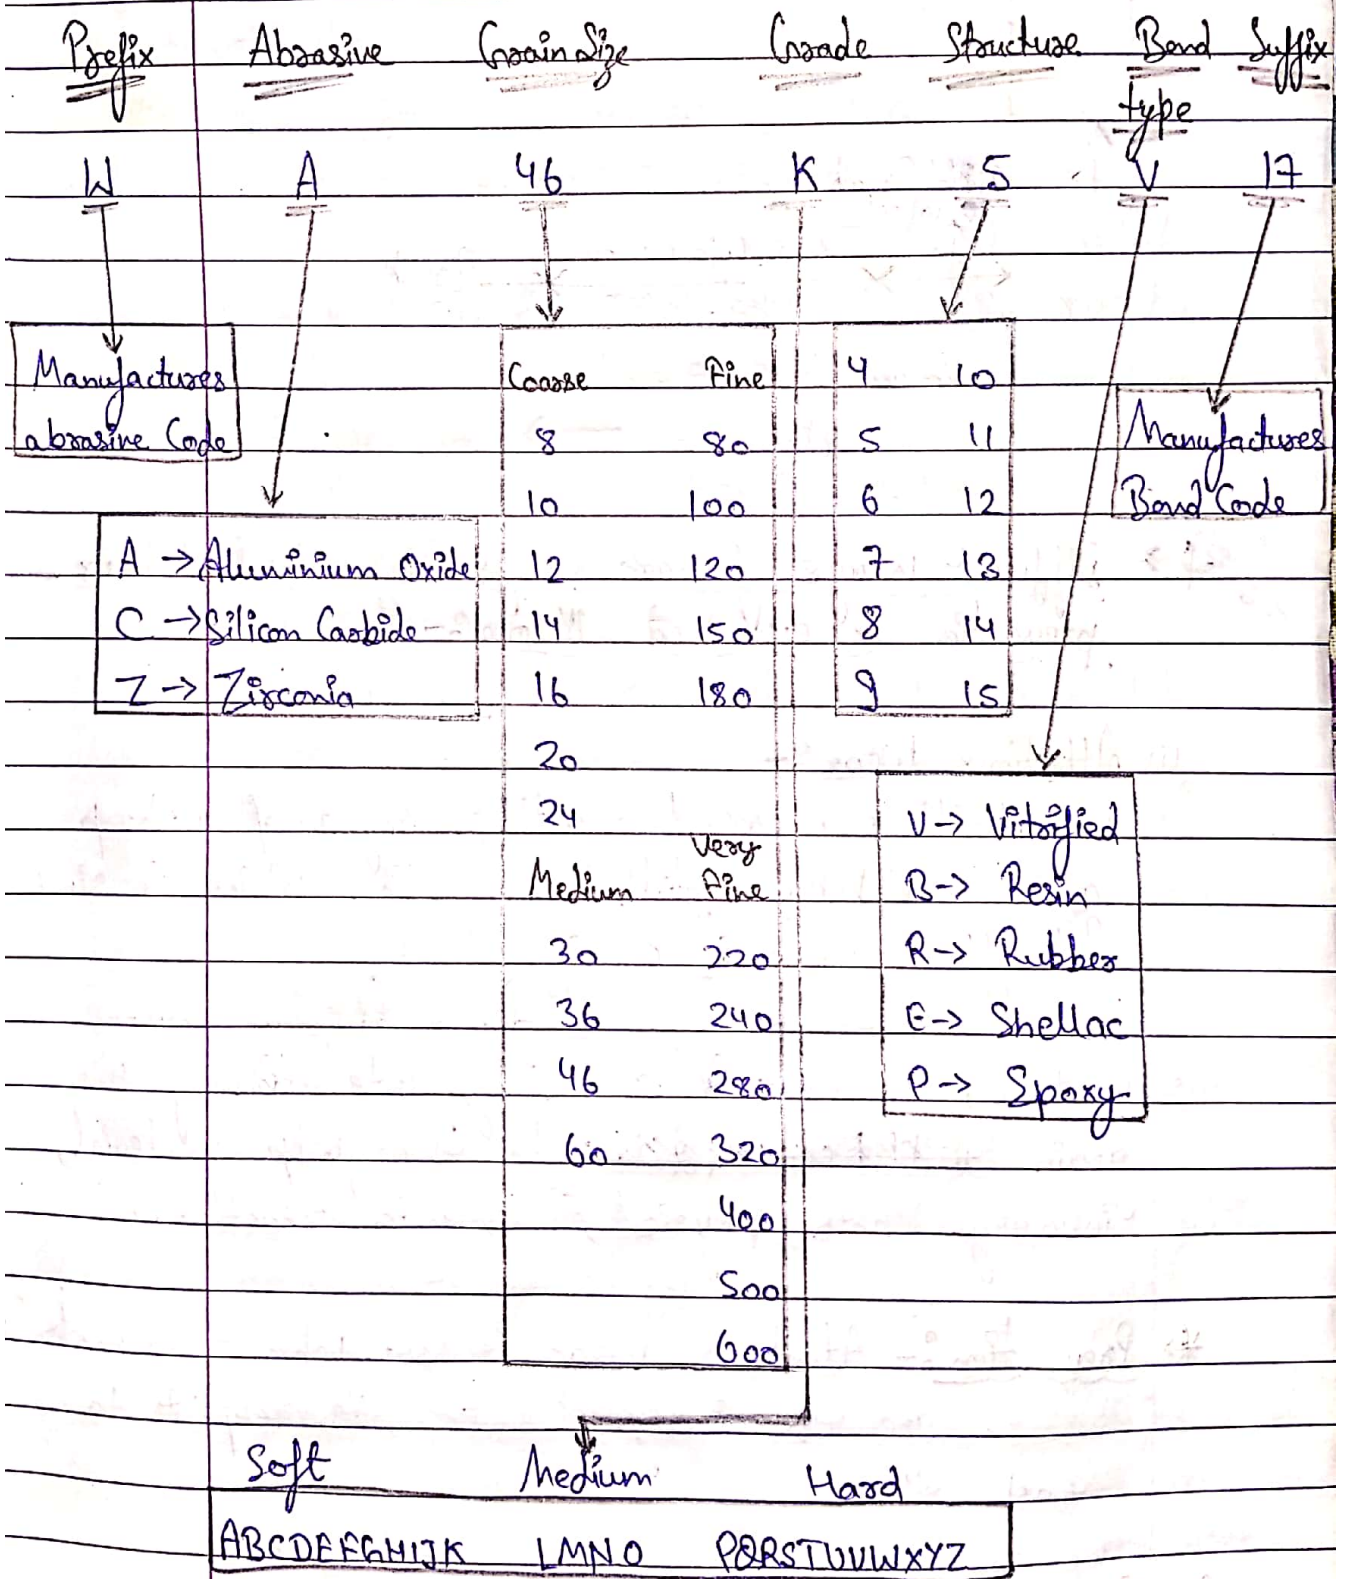 Prefix Abrasive Grain Size Grade Structure Bond Suffix
type
W A 46 K 5 V 17
Manufactures
abrasive Code
A → Aluminium Oxide
C → Silicon Carbide
Z → Zirconia
Coarse Fine
8 80
10 100
12 120
14 150
16 180
20
24
Medium Very Fine
30 220
36 240
46 280
60 320
400
500
600
4 10
5 11
6 12
7 13
8 14
9 15
Manufactures
Bond Code
V → Vitrified
B → Resin
R → Rubber
E → Shellac
P → Epoxy
Soft Medium Hard
ABCDEFGHIJK LMNO PQRSTUVWXYZ